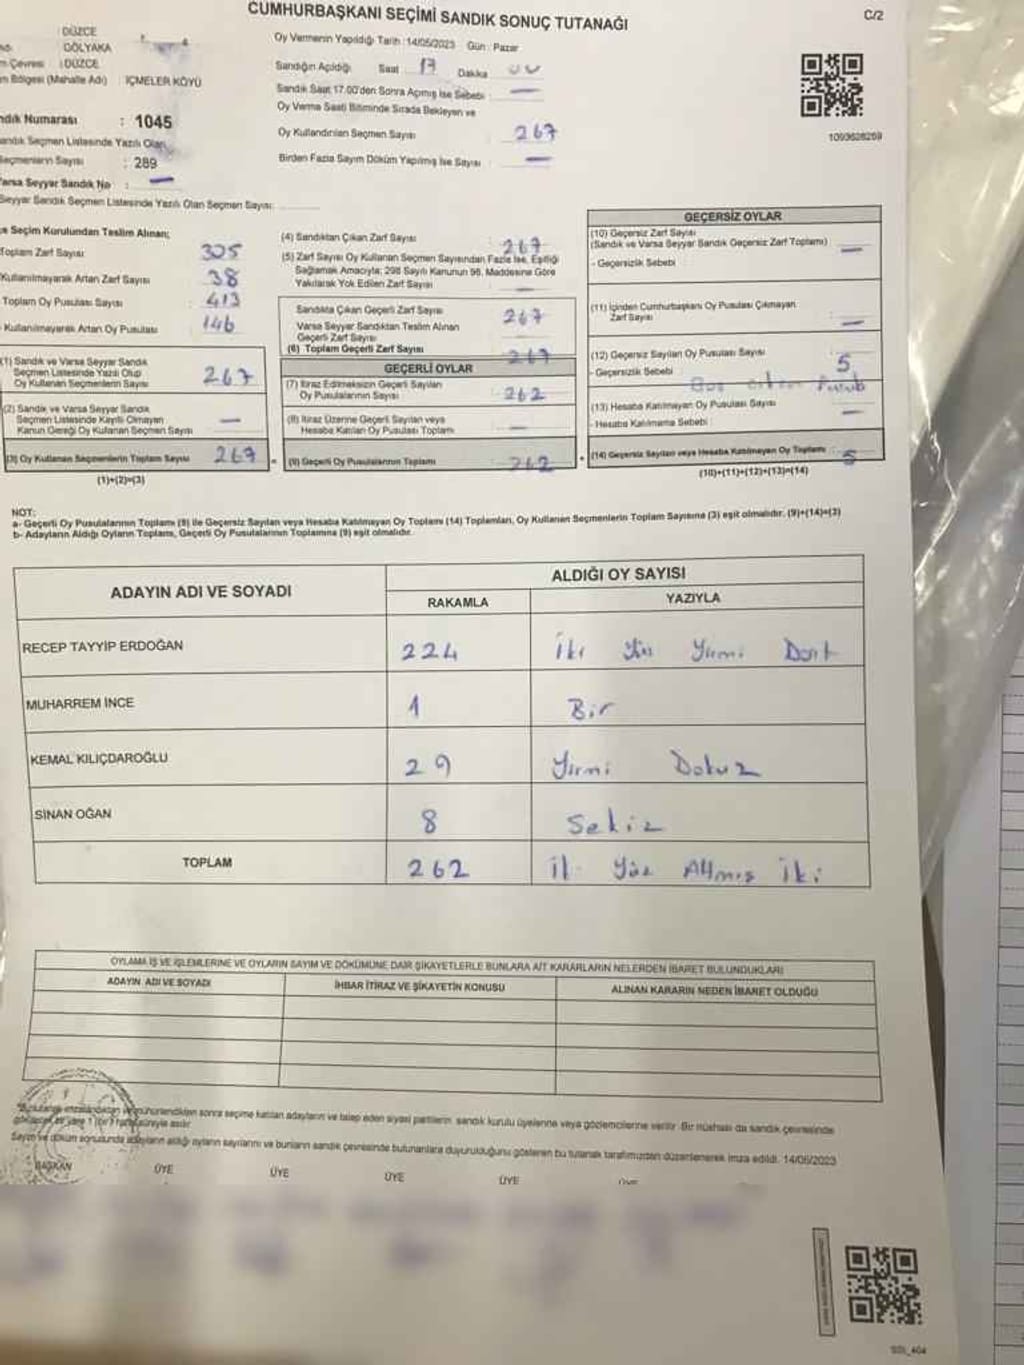 CUMHURBAŞKANI SEÇİMİ SANDIK SONUÇ TUTANAĞI
C/2
DÜZCE
GÖLYAKA
Çevresi : DÜZCE
Bölgesi (Mahalle Adı) : İÇMELER KÖYÜ
Oy Vermenin Yapıldığı Tarih : 14/05/2023 Gün : Pazar
Sandığın Açıldığı Saat 17 Dakika
Sandık Saat 17.00'den Sonra Açmış İse Sebebi : —
Oy Verme Saati Bitiminde Sırada Bekleyen ve
Oy Kullandırılan Seçmen Sayısı : 267
Birden Fazla Sayım Döküm Yapılmış İse Sayısı : —
1093628259
Numarası : 1045
Sandık Seçmen Listesinde Yazılı Olan
Seçmenlerin Sayısı : 289
Varsa Seyyar Sandık No : —
Seyyar Sandık Seçmen Listesinde Yazılı Olan Seçmen Sayısı:
Seçim Kurulundan Teslim Alınan;
Toplam Zarf Sayısı 305
Kullanılmayarak Artan Zarf Sayısı 38
Toplam Oy Pusulası Sayısı 413
Kullanılmayarak Artan Oy Pusulası 146
(1) Sandık ve Varsa Seyyar Sandık
Seçmen Listesinde Yazılı Olup
Oy Kullanan Seçmenlerin Sayısı 267
(2) Sandık ve Varsa Seyyar Sandık
Seçmen Listesinde Kayıtlı Olmayan
Kanun Gereği Oy Kullanan Seçmen Sayısı —
(3) Oy Kullanan Seçmenlerin Toplam Sayısı 267
(1)+(2)=(3)
(4) Sandıktan Çıkan Zarf Sayısı : 267
(5) Zarf Sayısı Oy Kullanan Seçmen Sayısından Fazla İse, Eşitliği
Sağlamak Amacıyla; 298 Sayılı Kanunun 98. Maddesine Göre
Yakılarak Yok Edilen Zarf Sayısı : —
Sandıkta Çıkan Geçerli Zarf Sayısı : 267
Varsa Seyyar Sandıktan Teslim Alınan
Geçerli Zarf Sayısı
(6) Toplam Geçerli Zarf Sayısı 267
GEÇERLİ OYLAR
(7) İtiraz Edilmeksizin Geçerli Sayılan
Oy Pusulalarının Sayısı : 262
(8) İtiraz Üzerine Geçerli Sayılan veya
Hesaba Katılan Oy Pusulası Toplamı : —
(9) Geçerli Oy Pusulalarının Toplamı : 262
GEÇERSİZ OYLAR
(10) Geçersiz Zarf Sayısı
(Sandık ve Varsa Seyyar Sandık Geçersiz Zarf Toplamı) : —
- Geçersizlik Sebebi
(11) İçinden Cumhurbaşkanı Oy Pusulası Çıkmayan
Zarf Sayısı : —
(12) Geçersiz Sayılan Oy Pusulası Sayısı : 5
- Geçersizlik Sebebi
(13) Hesaba Katılmayan Oy Pusulası Sayısı : —
- Hesaba Katılmama Sebebi
(14) Geçersiz Sayılan veya Hesaba Katılmayan Oy Toplamı : 5
(10)+(11)+(12)+(13)=(14)
NOT:
a- Geçerli Oy Pusulalarının Toplamı (9) ile Geçersiz Sayılan veya Hesaba Katılmayan Oy Toplamı (14) Toplamları, Oy Kullanan Seçmenlerin Toplam Sayısına (3) eşit olmalıdır. (9)+(14)=(3)
b- Adayların Aldığı Oyların Toplamı, Geçerli Oy Pusulalarının Toplamına (9) eşit olmalıdır.
ADAYIN ADI VE SOYADI
ALDIĞI OY SAYISI
RAKAMLA YAZIYLA
RECEP TAYYİP ERDOĞAN 224 İki Yüz Yirmi Dört
MUHARREM İNCE 1 Bir
KEMAL KILIÇDAROĞLU 29 Yirmi Dokuz
SİNAN OĞAN 8 Sekiz
TOPLAM 262 Yüz Altmış İki
OYLAMA İŞ VE İŞLEMLERİNE VE OYLARIN SAYIM VE DÖKÜMÜNE DAİR ŞİKAYETLERLE BUNLARA AİT KARARLARIN NELERDEN İBARET BULUNDUKLARI
ADAYIN ADI VE SOYADI İHBAR İTİRAZ VE ŞİKAYETİN KONUSU ALINAN KARARIN NEDEN İBARET OLDUĞU
sonra seçime katılan adayların ve talep eden siyasi partilerin sandık kurulu üyelerine veya gözlemcilerine verilir. Bir nüshası da sandık çevresinde
Sayım ve döküm sonucunda adayların aldığı oyların sayılarını ve bunların sandık çevresinde bulunanlara duyurulduğunu gösteren bu tutanak tarafımızdan düzenlenerek imza edildi. 14/05/2023
BAŞKAN ÜYE ÜYE ÜYE ÜYE ÜYE